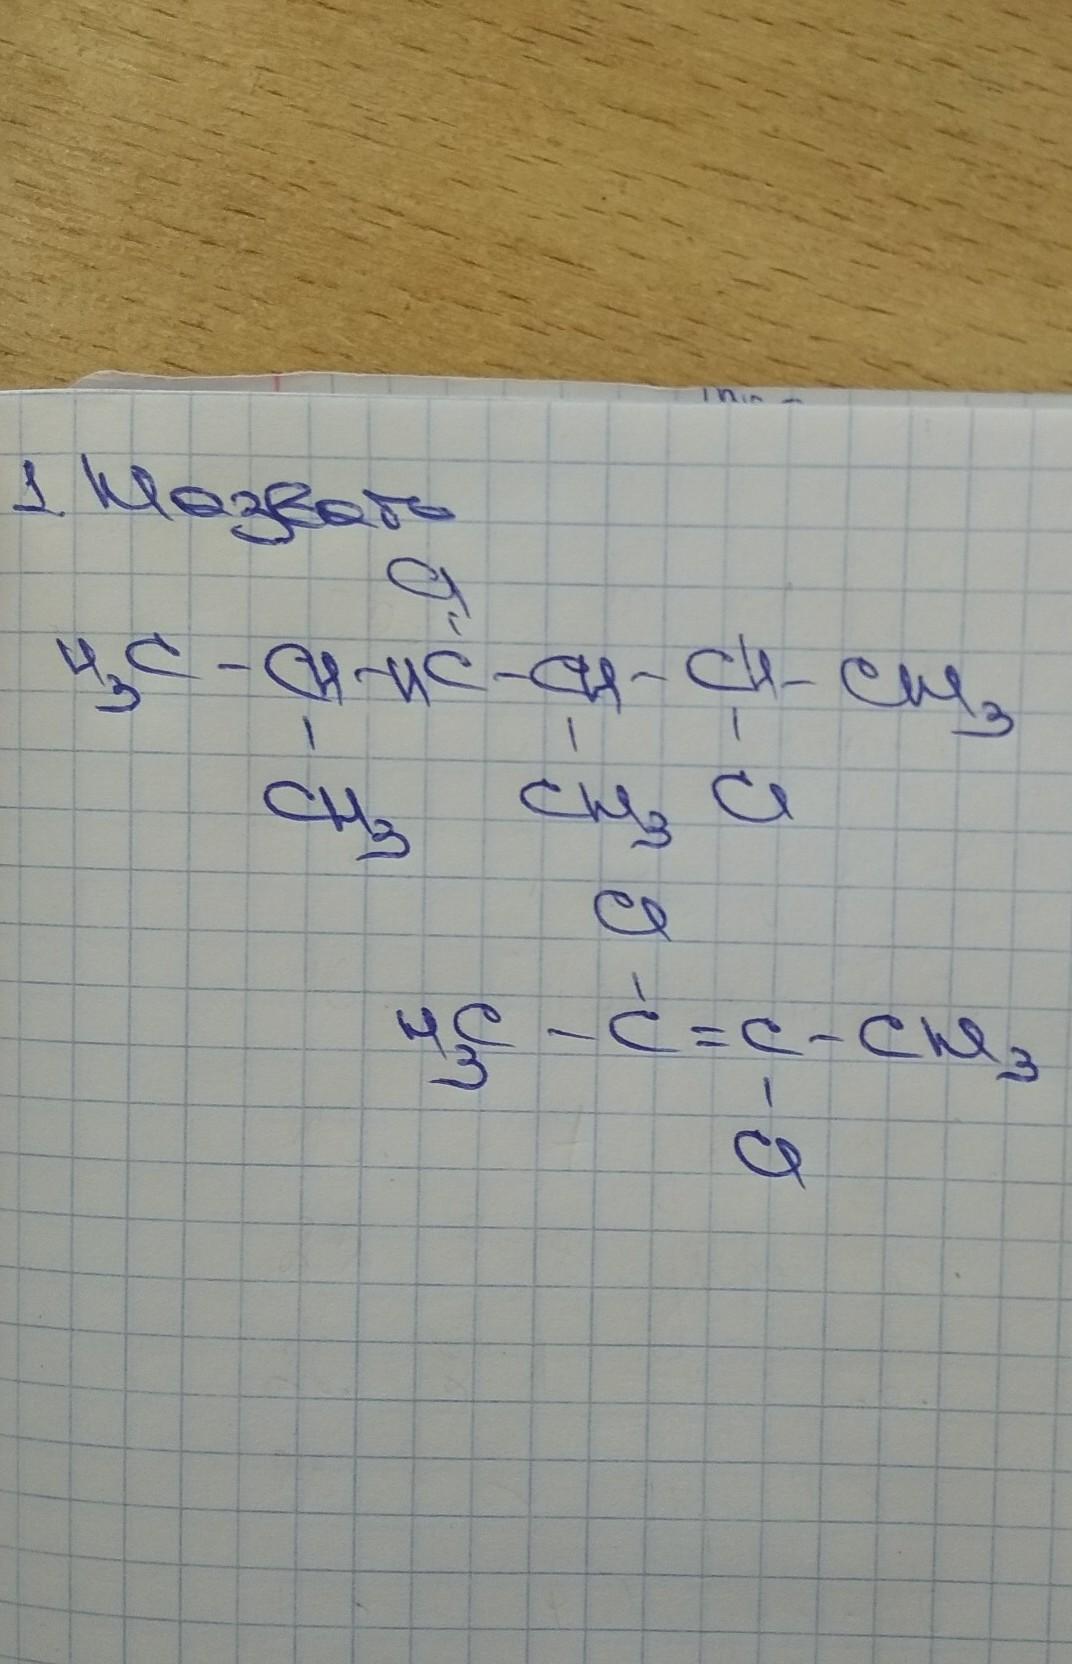 1. Назвать
Cl
H3C - CH - HC - CH - CH - CH3
CH3 CH3 Cl
Cl
H3C - C = C - CH3
Cl